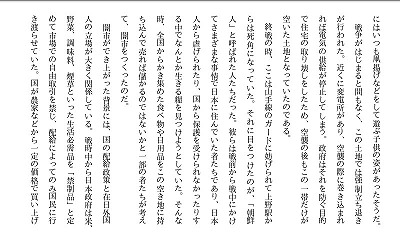 にはいつも凧揚げなどをして遊ぶ子供の姿があったそうだ。
　戦争がはじまると間もなく、この土地では強制立ち退き
が行われた。近くに変電所があり、空襲の際に巻き込まれ
れば電気の供給が停止してしまう。政府はそれを防ぐ目的
で住宅の取り壊しをしたため、空襲の後もこの一帯だけが
空いた土地となっていたのである。
　終戦の時、ここは山手線のガードに妨げられて上野駅か
らは死角になっていた。それに目をつけたのが、「朝鮮
人」と呼ばれた人たちだった。彼らは戦前から戦中にかけ
てさまざまな事情で日本に住んでいた者たちであり、日本
人から虐げられたり、国から保護を受けられなかったりす
る中でなんとか生きる糧を見つけようとしていた。そんな
時、全国からかき集めた食べ物や日用品をこの空き地に持
ち込んで売れば儲かるのではないかと一部の者たちが考え
て、闇市をつくったのだ。
　闇市ができ上がった背景には、国の配給政策と在日外国
人の立場が大きく関係している。戦時中から日本政府は米、
野菜、調味料、煙草といった生活必需品を「禁制品」と定
めて市場での自由取引を禁じ、配給によってのみ国民に行
き渡らせていた。国が農家などから一定の価格で買い上げ